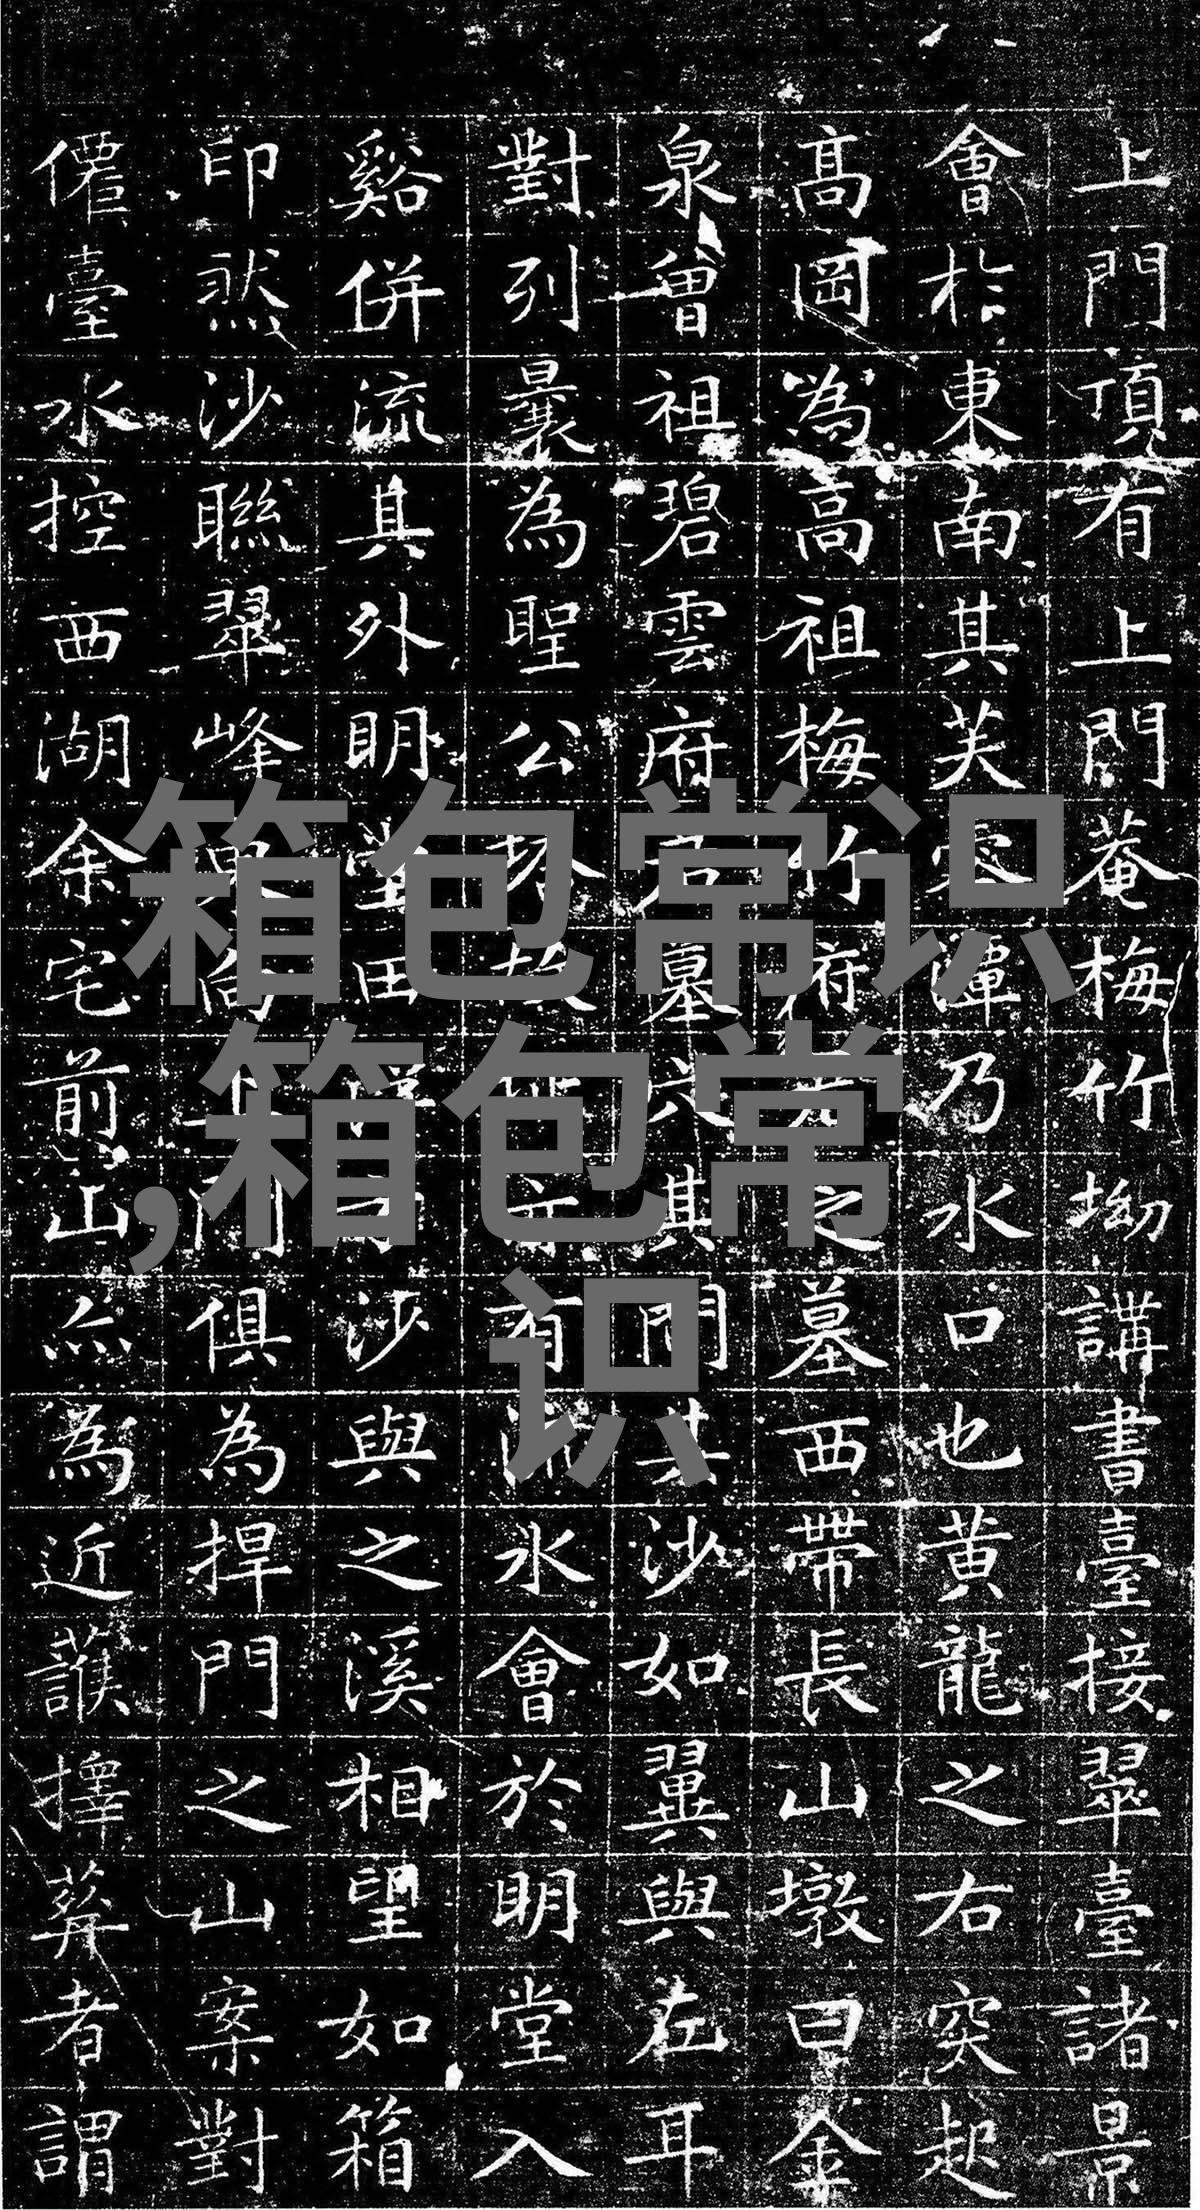 上門頂有上門菴梅竹坳講書臺接翠臺諸景
會扵東南其芙容潭乃水口也黃龍之右突起
髙岡為髙祖梅竹府之墓西帶長山墩曰金
泉曾祖碧雲府君墓穴其間其沙如翼與左耳
對列曩為聖公塔故有流水會於明堂入
谿併流其外明堂田沙與之溪相望如箱
印然沙聯翠峰門俱為捍門之山案對
僊臺水控西湖余宅前山亦為近護擇葬者謂
箱包常识
,箱包常
识